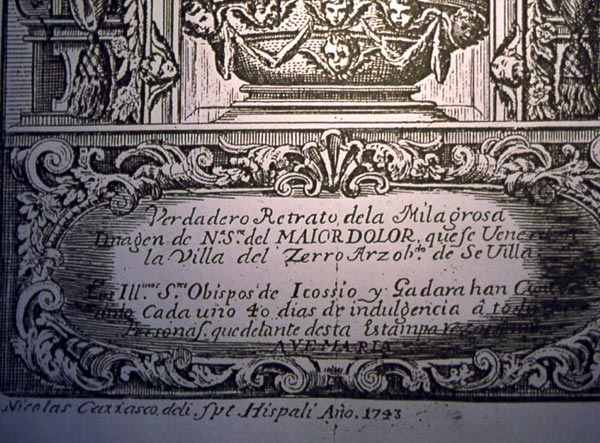 Verdadero Retrato dela Milagrosa
Imagen de N.ª S.ra del MAIOR DOLOR, que se Venera
la Villa del Zerro Arzob.do de SeVilla.
Los Ill.mos S.res Obispos de Icossio y Gadara han
Cada uno 40 dias de indulgencia â
Personas, que delante desta Estampa
AVE MARIA
Nicolas Carrasco deli. Spt Hispali Año. 1743